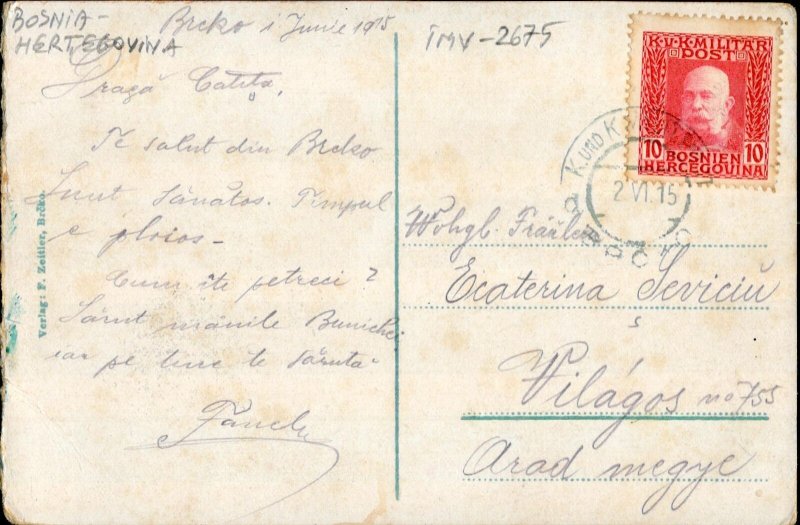 BOSNIA-
HERŢEGOVINA
Brcko 1 Junie 1915
ÎMV-2675
Dragă Catiţa,
Te salut din Brcko
Sunt sănătos. Timpul
e ploios-
Cum îţe petreci?
Sărut mănile Bunichei
iar pe tine te săruta-
Verlag: F. Zeitler, Brčko.
K.u.K. MILITÄR
POST
10 BOSNIEN 10
HERCEGOVINA
K. UND K.
2.VI.15
BRČKO
Wohgl. Fräulein
Ecaterina Seviciu
s
Világos no 755
Arad megye